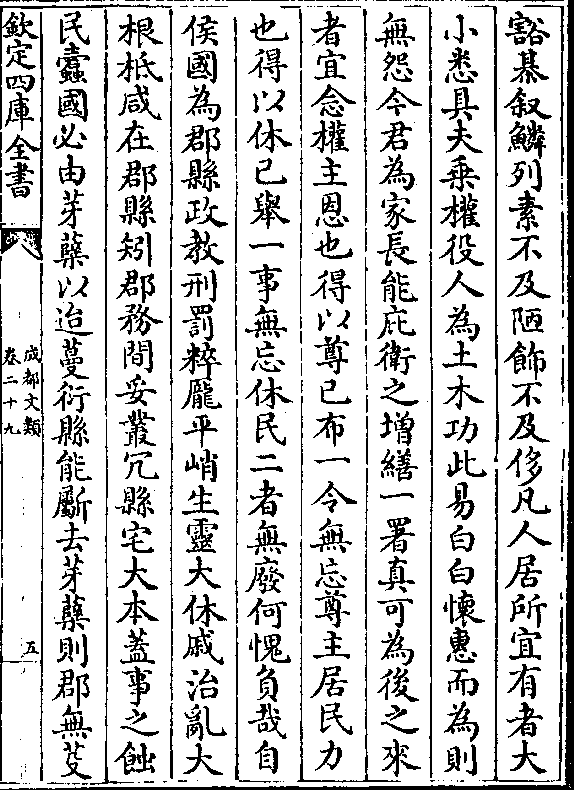 豁棊叙鱗列素不及陋飾不及侈凡人居所宜有者大
小悉具夫乗權役人為土木功此易白白懐惠而為則
無怨今君為家長能庇衛之增繕一署真可為後之來
者宜念權主恩也得以尊已布一令無忘尊主居民力
也得以休已舉一事無忘休民二者無廢何愧負哉自
侯國為郡縣政教刑罰粹龎平峭生靈大休戚治亂大
根柢咸在郡縣矧郡務閒妥叢冗縣宅大本蓋事之蝕
民蠧國必由芽蘖以迨蔓衍縣能斸去芽蘖則郡無芟
欽定四庫全書
成都文類
卷二十九
五